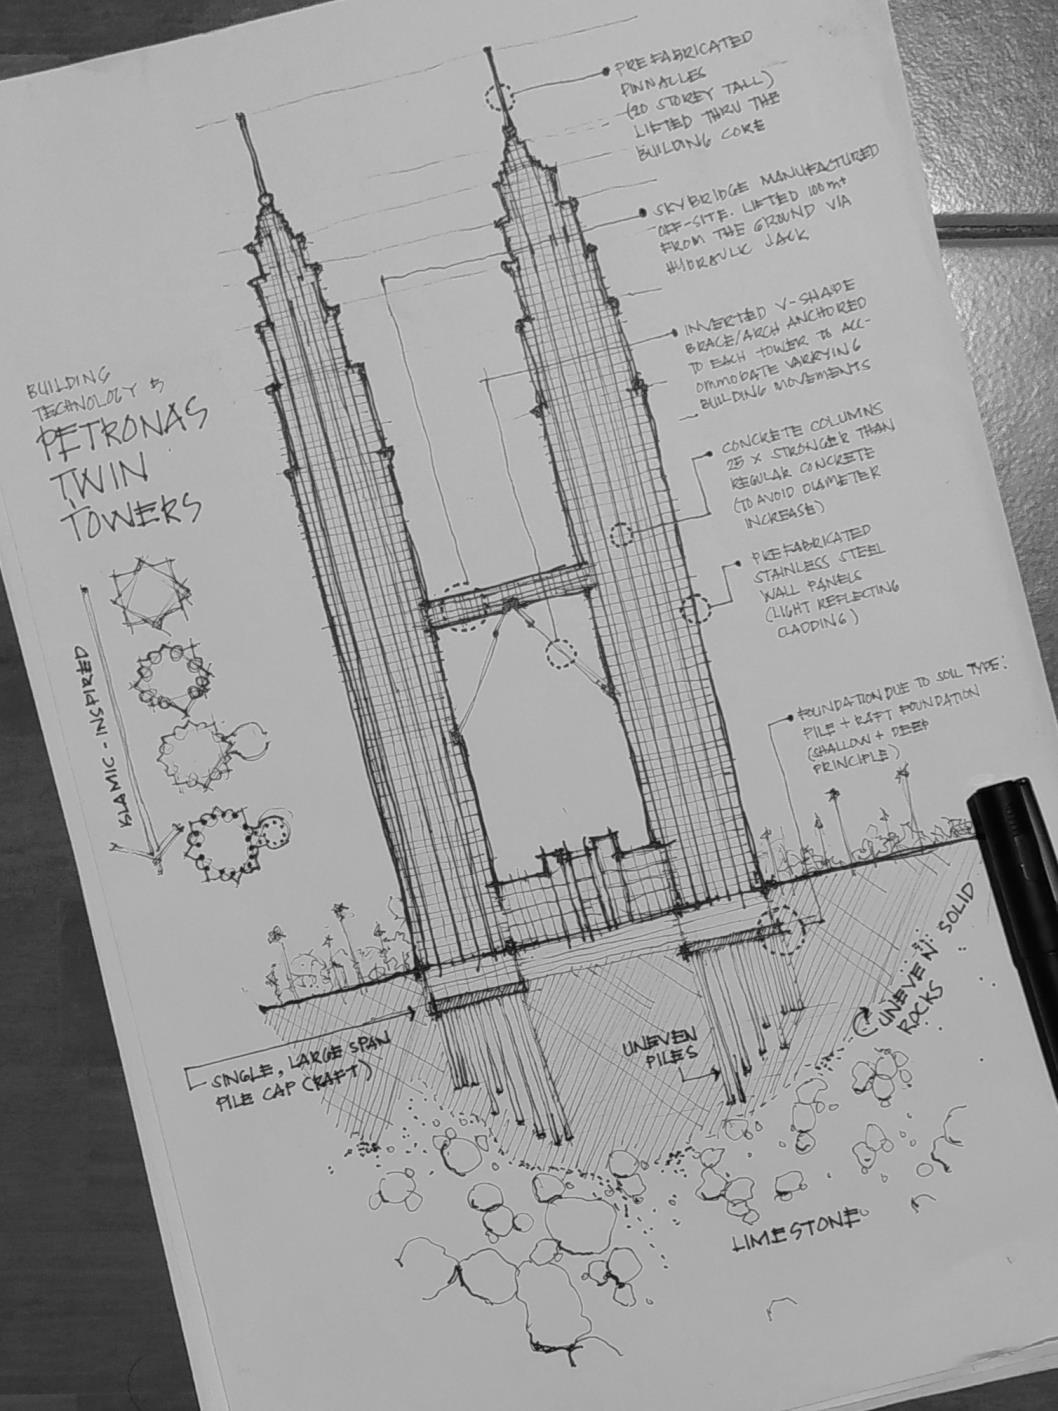 PREFABRICATED
PINNACLES
(20 STOREY TALL)
LIFTED THRU THE
BUILDING CORE
SKYBRIDGE MANUFACTURED
OFF-SITE. LIFTED 100m+
FROM THE GROUND VIA
HYDRAULIC JACK
INVERTED V-SHAPE
BRACE/ARCH ANCHORED
TO EACH TOWER TO ACC-
OMMODATE VARRYING
BUILDING MOVEMENTS
BUILDING
TECHNOLOGY 5
PETRONAS
TWIN
TOWERS
CONCRETE COLUMNS
25 X STRONGER THAN
REGULAR CONCRETE
(TO AVOID DIAMETER
INCREASE)
PREFABRICATED
STAINLESS STEEL
WALL PANELS
(LIGHT REFLECTING
CLADDING)
ISLAMIC-INSPIRED
FOUNDATION DUE TO SOIL TYPE:
PILE + RAFT FOUNDATION
(SHALLOW + DEEP
PRINCIPLE)
UNEVEN SOLID
ROCKS
SINGLE, LARGE SPAN
PILE CAP (RAFT)
UNEVEN
PILES
LIMESTONE